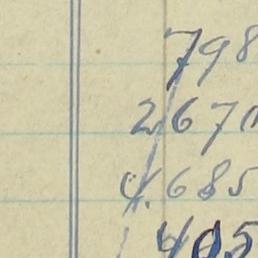 798
2,670
4,685
405